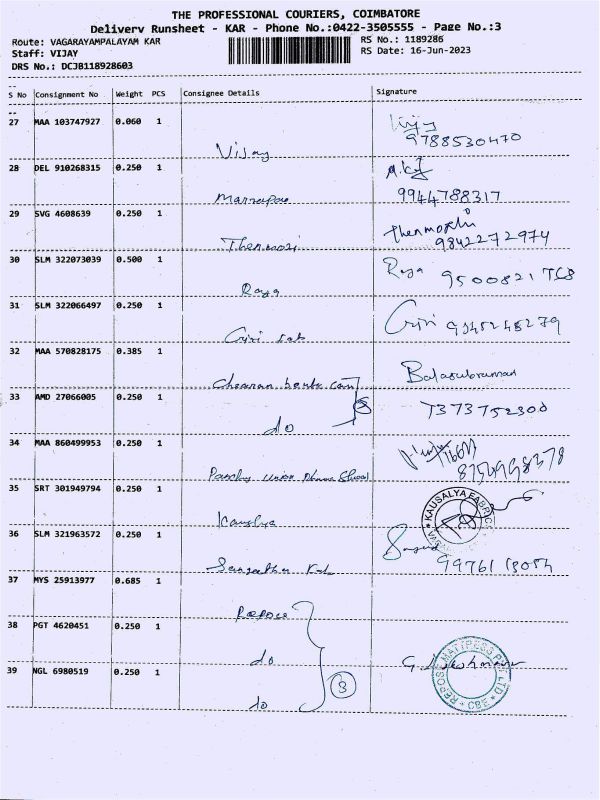 THE PROFESSIONAL COURIERS, COIMBATORE
Delivery Runsheet - KAR - Phone No.:0422-3505555 - Page No.:3
Route: VAGARAYAMPALAYAM KAR
RS No.: 1189286
Staff: VIJAY
RS Date: 16-Jun-2023
DRS No.: DCJB118928603
S No Consignment No Weight PCS Consignee Details Signature
27 MAA 103747927 0.060 1
Vijay
Vijay
9788530470
28 DEL 910268315 0.250 1
9944788317
29 SVG 4608639 0.250 1
Thenmozhi
9842272974
30 SLM 322073039 0.500 1
Raya
Raya
31 SLM 322066497 0.250 1
Giri
Giri 9345245279
32 MAA 570828175 0.385 1
Balasubramani
33 AMD 27066005 0.250 1
do
7373752300
34 MAA 860499953 0.250 1
Union
35 SRT 301949794 0.250 1
KAUSALYA FABRIC
36 SLM 321963572 0.250 1
37 MYS 25913977 0.685 1
Repose
38 PGT 4620451 0.250 1
do
39 NGL 6980519 0.250 1
do
3
REPOSE MATTRESS PVT LTD
CBE